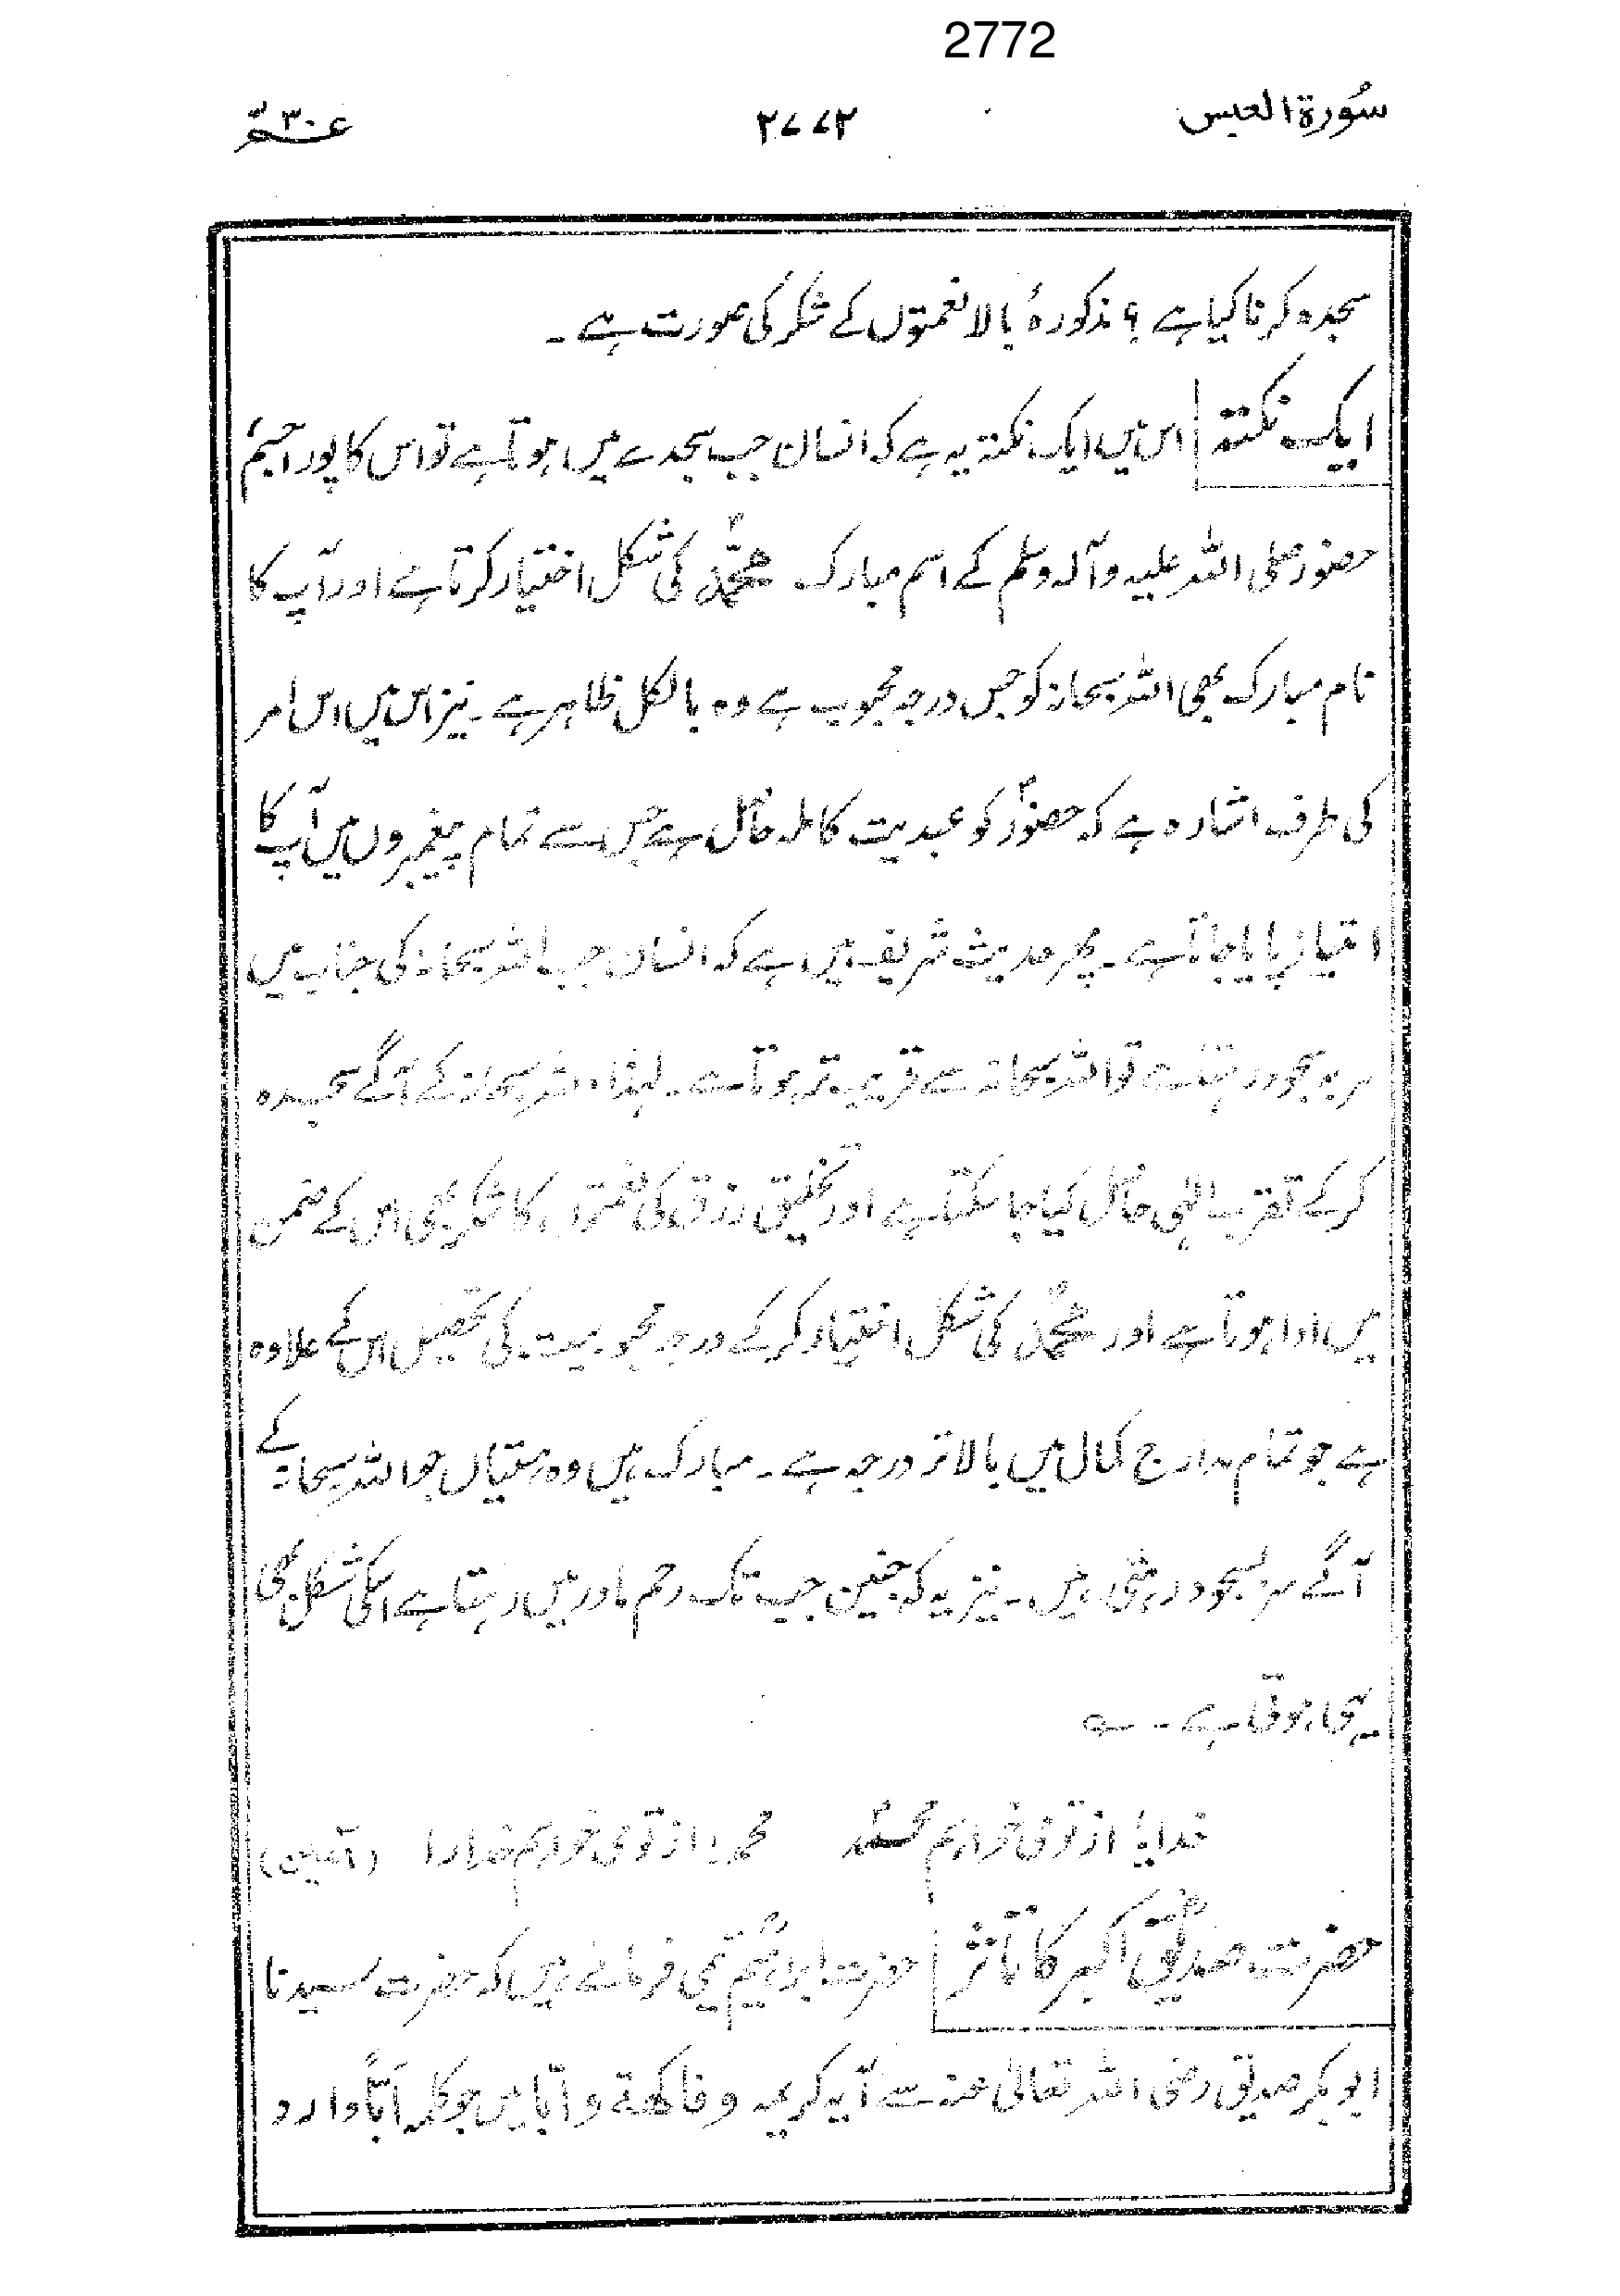 2772
سُورۃ العبس ۲۷۷۲ عـم۳۰
سجدہ کرنا کیا ہے ؟ مذکورۂ بالا نعمتوں کے شکر کی صورت ہے ۔
ایک نکتہ اس میں ایک نکتہ یہ ہے کہ انسان جب سجدے میں ہوتا ہے تو اس کا پورا جسم
حضور صلی اللہ علیہ وآلہ وسلم کے اسم مبارک محمّدؐ کی شکل اختیار کرتا ہے اور آپ کا
نام مبارک بھی اللہ سبحانہ کو جس درجہ محبوب ہے وہ بالکل ظاہر ہے ۔ نیز اس میں اس امر
کی طرف اشارہ ہے کہ حضورؐ کو عبدیت کاملہ حاصل ہے جس سے تمام پیغمبروں میں آپ کا
امتیاز پایا جاتا ہے ۔ پھر حدیث شریف میں ہے کہ انسان جب اللہ سبحانہ کی جناب میں
سر بہ سجود رہتا ہے تو اللہ سبحانہ سے قریب تر ہوتا ہے ۔ لہٰذا اللہ سبحانہ کے آگے سجدہ
کر کے تقرب الٰہی حاصل کیا جا سکتا ہے اور تخلیق رزق کی نعمتوں کا شکر بھی اس کے ضمن
میں ادا ہوتا ہے اور محمدؐ کی شکل اختیار کر کے درجہ محبوبیت کی تحصیل اس کے علاوہ
ہے جو تمام مدارج کمال میں بالاتر درجہ ہے ۔ مبارک ہیں وہ ہستیاں جو اللہ سبحانہ کے
آگے سر بسجود رہتی ہیں ۔ نیز یہ کہ جنین جب تک رحم مادر میں رہتا ہے اسکی شکل بھی
یہی ہوتی ہے ۔ ؎
خدایا از تو می خواہم محمدؐ محمدؐ از تو می خواہم خدا را (آمین)
حضرت صدیقؓ اکبر کا تأثر حضرت ابراہیم تیمیؒ فرماتے ہیں کہ حضرت سیدنا
ابو بکر صدیق رضی اللہ تعالیٰ عنہ سے آیہ کریمہ و فاکھۃ و ابّا میں جو کلمہ اَبًّا وارد